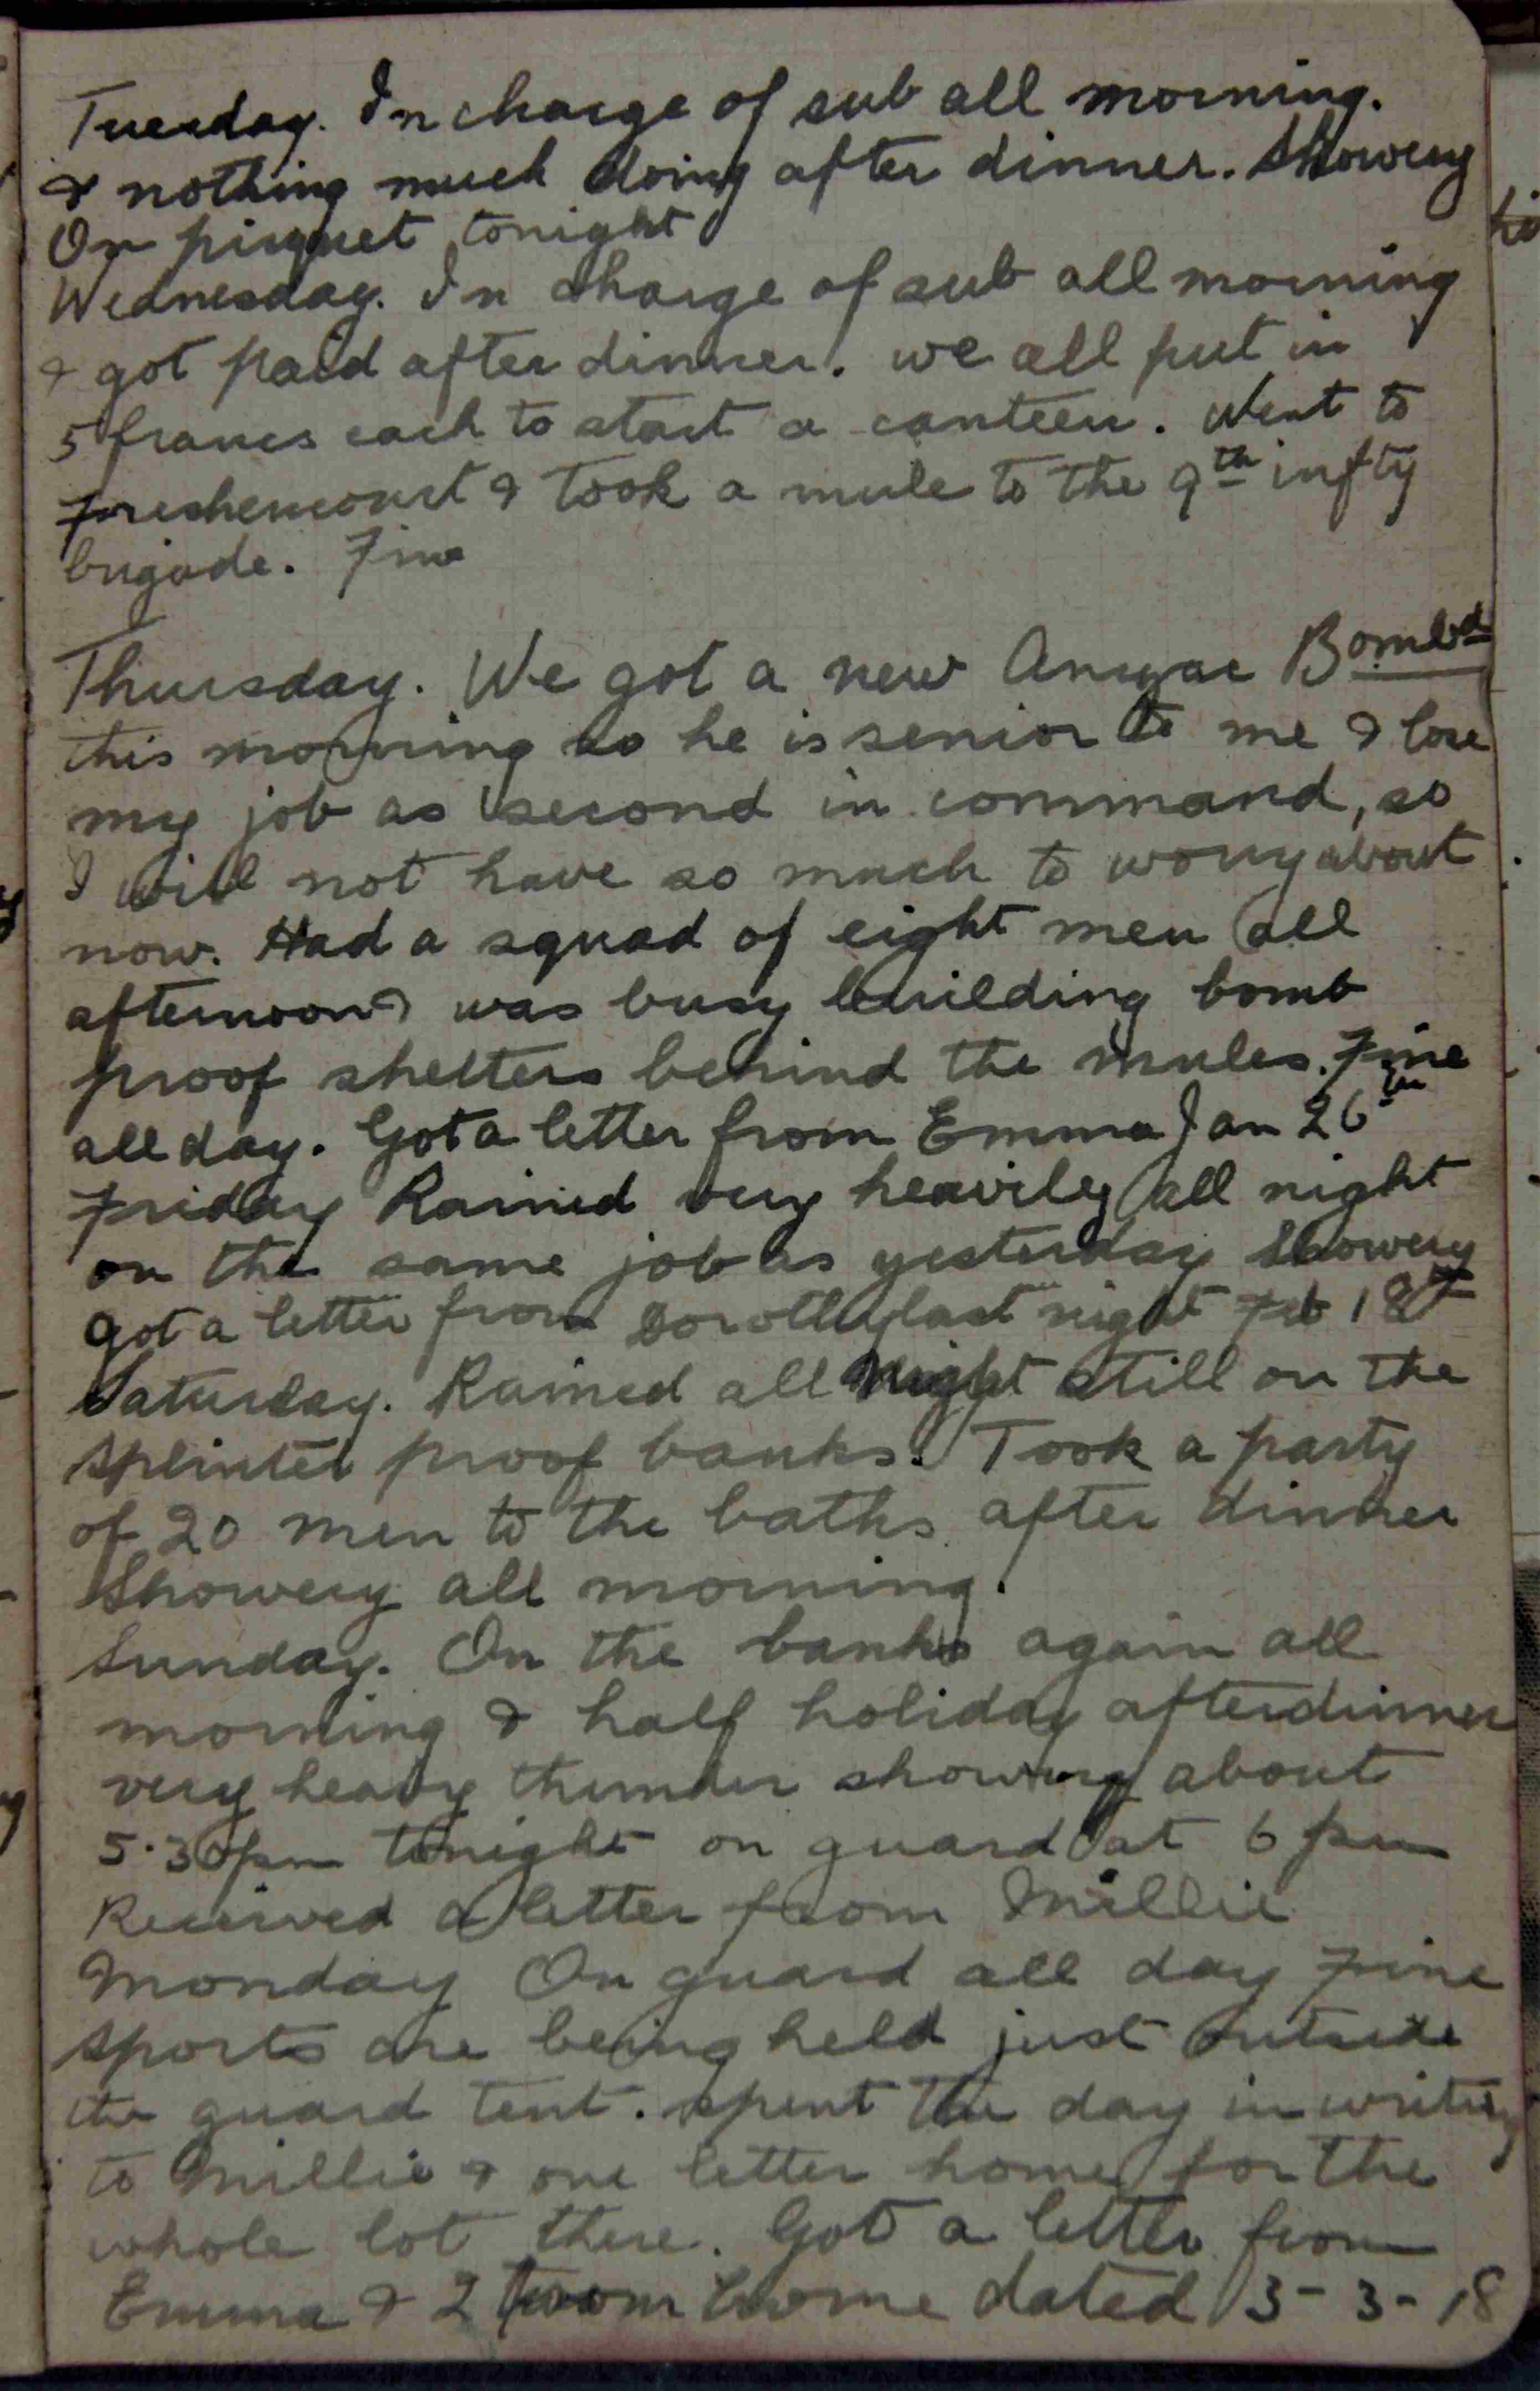 Tuesday. In charge of sub all morning.
& nothing much doing after dinner. Showery
On picquet tonight
Wednesday. In charge of sub all morning
& got paid after dinner. We all put in
5 francs each to start a canteen. Went to
& took a mule to the 9th infty
brigade. Fine
Thursday. We got a new Anzac Bombd
this morning so he is senior to me & lose
my job as second in command, so
I will not have so much to worry about
now. Had a squad of eight men all
afternoon & was busy building bomb
proof shelters behind the mules. Fine
all day. Got a letter from Emma Jan 26th
Friday Rained very heavily all night
on the same job as yesterday Showery
Got a letter from Dorothy last night Feb 18th
Saturday. Rained all night still on the
splinter proof banks. Took a party
of 20 men to the baths after dinner
Showery all morning.
Sunday. On the banks again all
morning & half holiday after dinner
very heavy thunder about
5.30pm tonight on guard at 6 pm
Received a letter from Millie
Monday On guard all day Fine
sports are being held just outside
the guard tent. spent the day in writing
to Millie & one letter home for the
whole lot there. Got a letter from
Emma & 2 from home dated 3-3-18